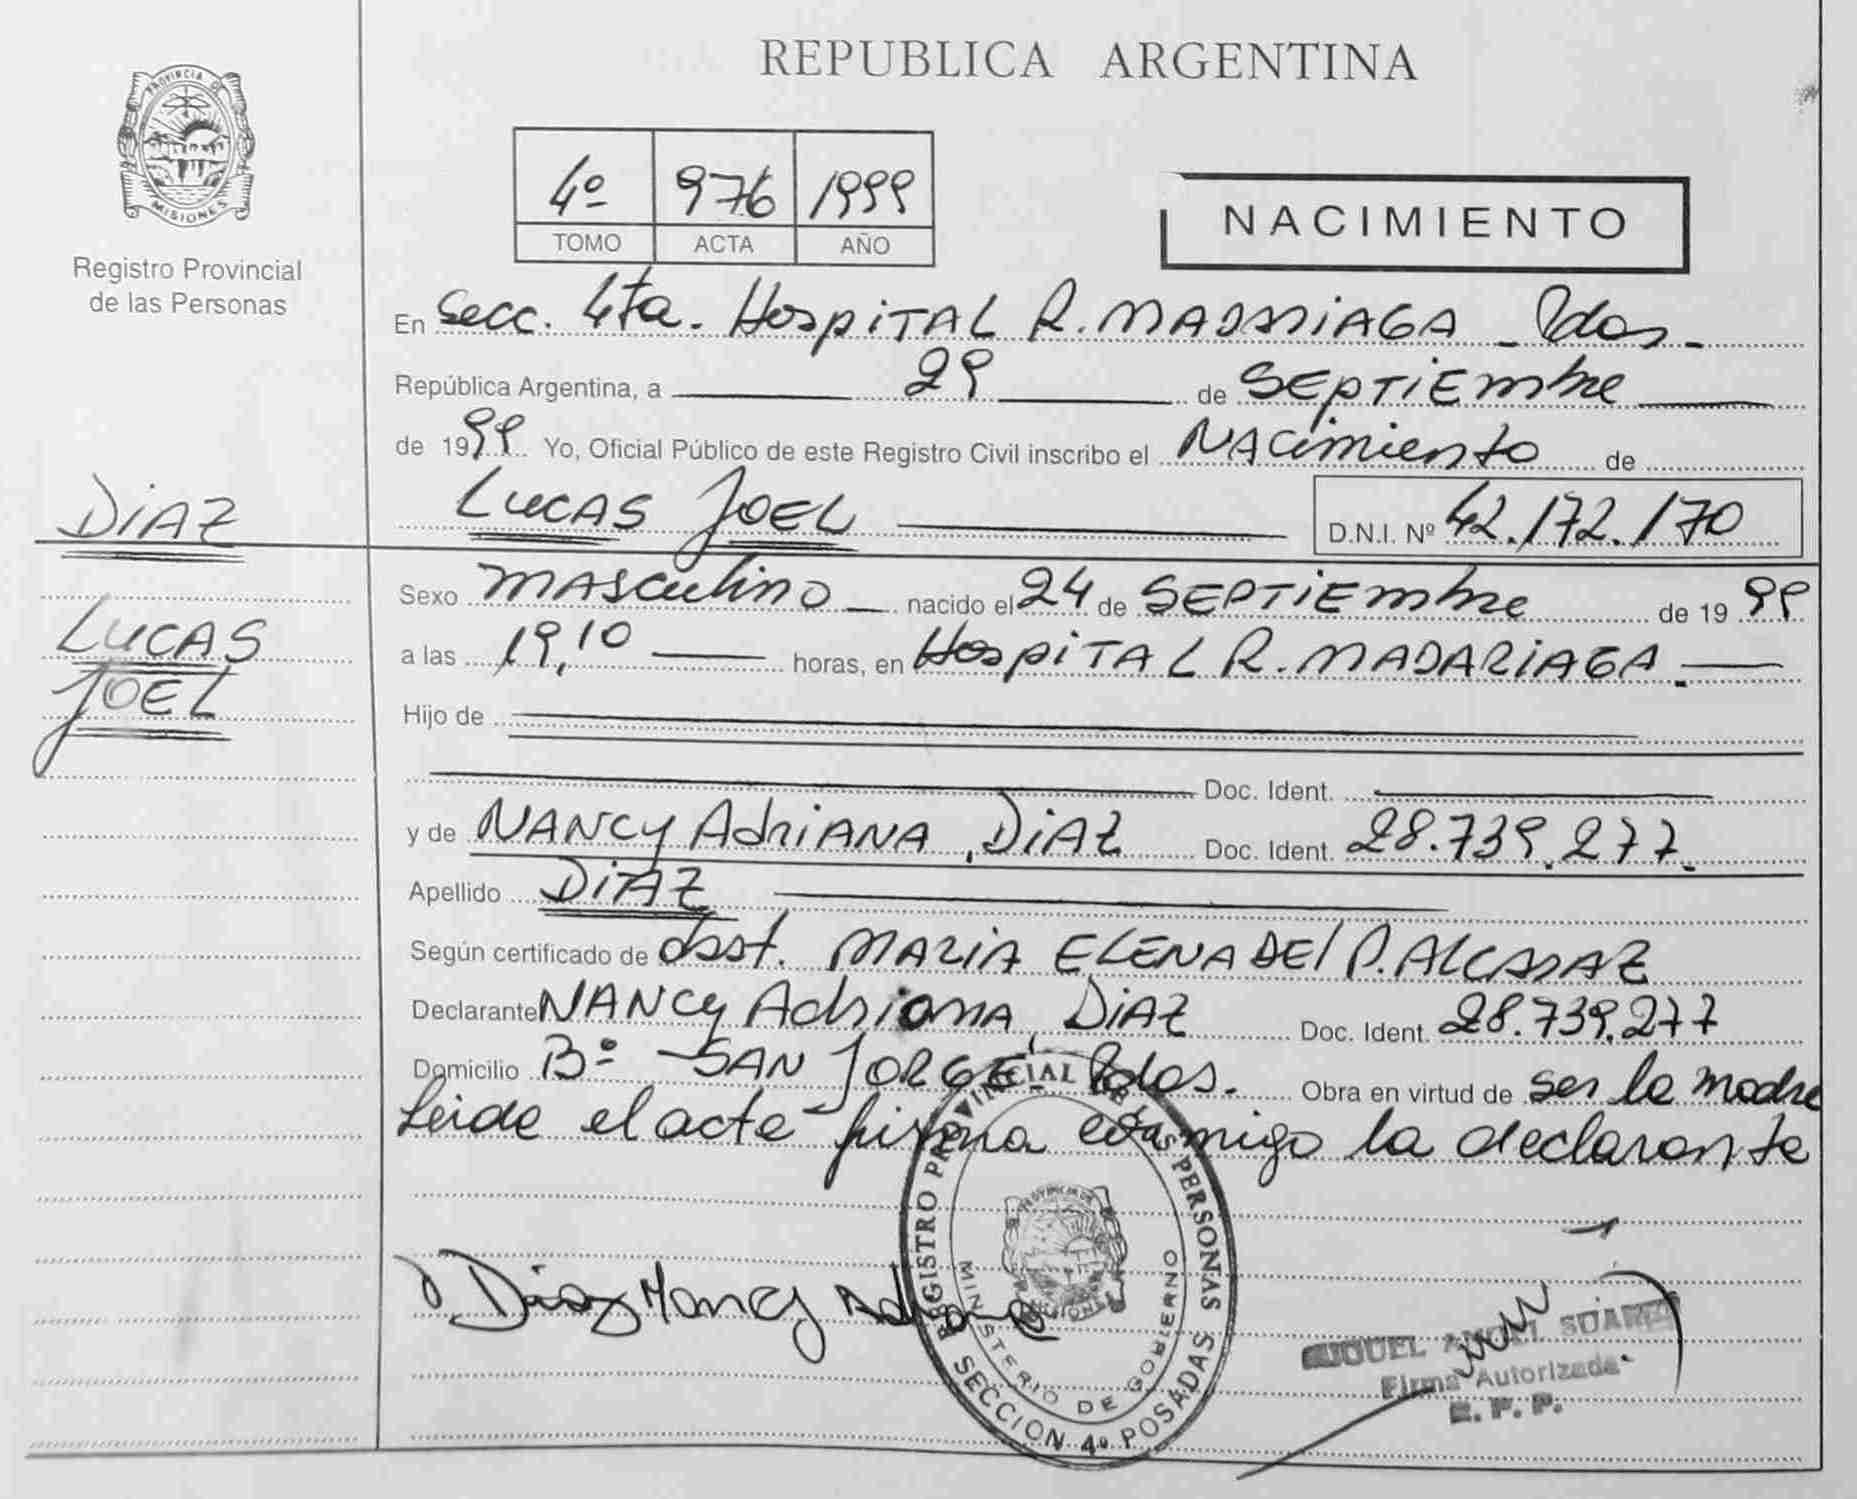 REPUBLICA ARGENTINA
PROVINCIA DE
MISIONES
Registro Provincial
de las Personas
4º 976 1999
TOMO ACTA AÑO
NACIMIENTO
En Secc. 4ta. Hospital R. MADARIAGA - Pdas -
República Argentina, a 29 de SEPTIEmbre
de 1999 Yo, Oficial Público de este Registro Civil inscribo el NAcimiento de
DiAZ
LUCAS JOEL D.N.I. Nº 42.172.170
Sexo mAsculino nacido el 24 de SEPTiEmbre de 1999
LUCAS
JOEL
a las 19,10 horas, en HospiTAL R. MADARiAGA.
Hijo de
Doc. Ident.
y de NANCy AdriANA DiAZ Doc. Ident. 28.739.277.
Apellido DiAZ
Según certificado de obst. MARiA ELENA DEl P. ALCARAZ
Declarante NANCy Adriana DiAZ Doc. Ident. 28.739.277
Domicilio Bº SAN JORGE Pdas. Obra en virtud de ser la madre
Leida el acta firma conmigo la declarante
REGISTRO PROVINCIAL DE LAS PERSONAS
MINISTERIO DE GOBIERNO
SECCION 4º POSADAS
Diaz Nancy Adriana
MIGUEL ANGEL SUAREZ
Firma Autorizada